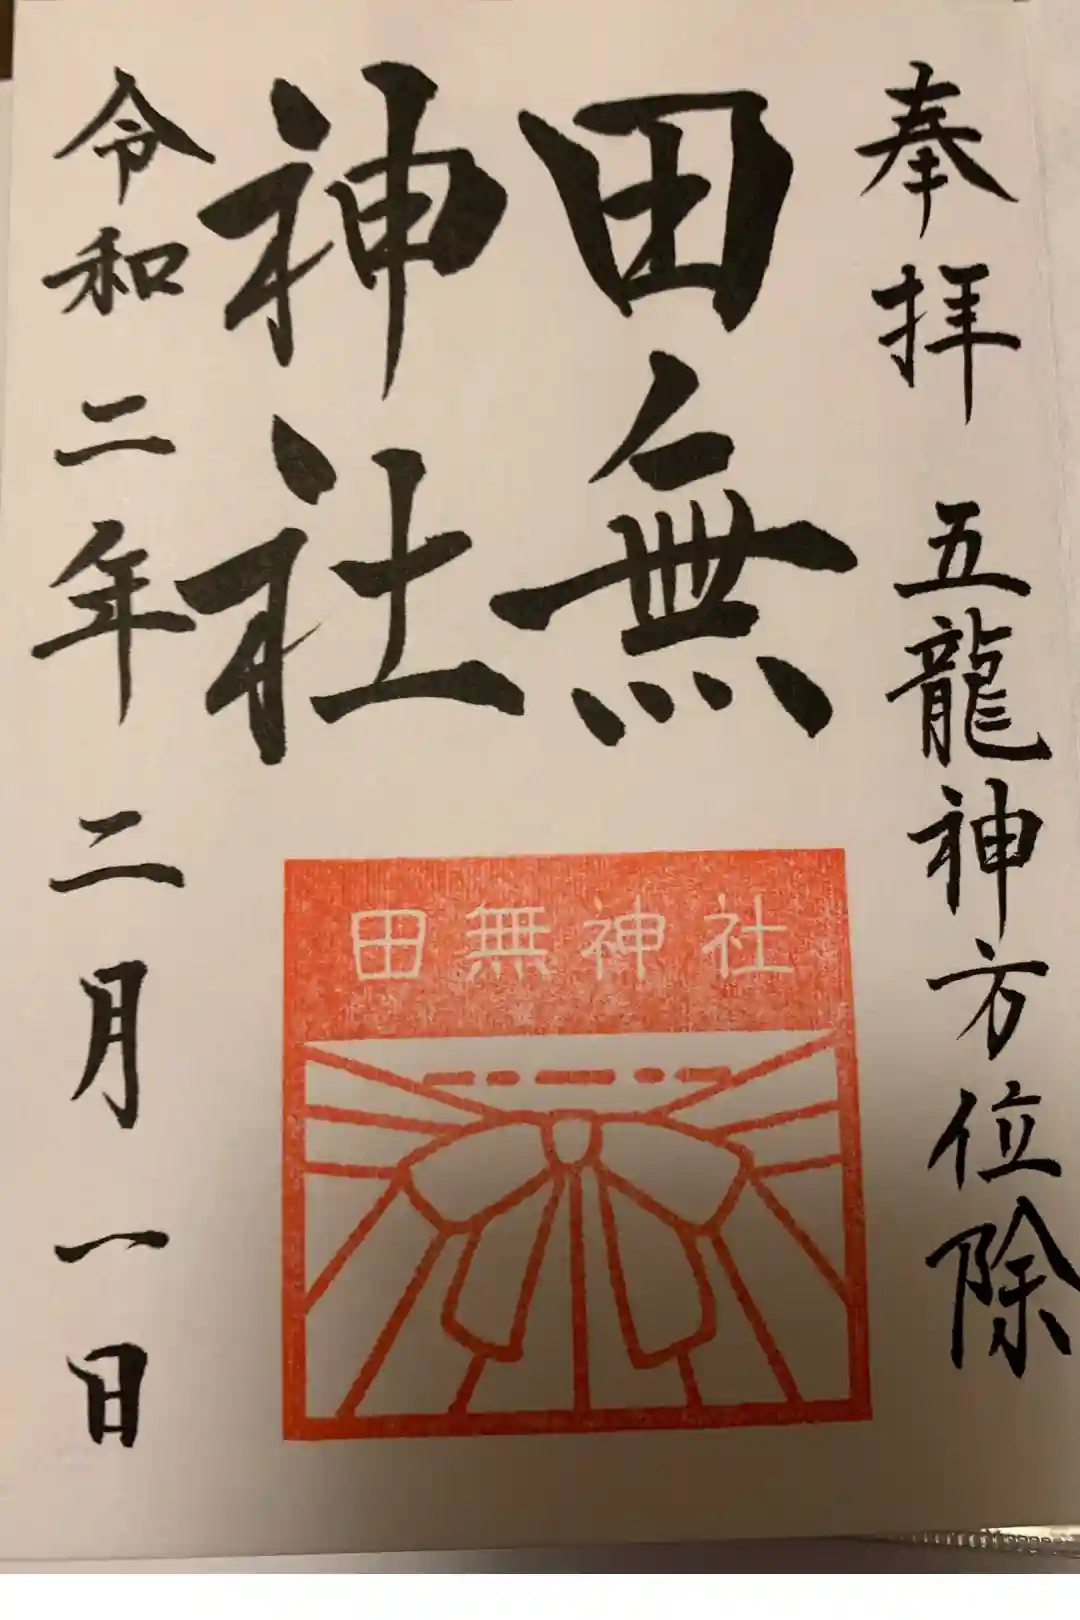 奉拝 五龍神方位除
田無
神社
令和二年二月一日
田無神社